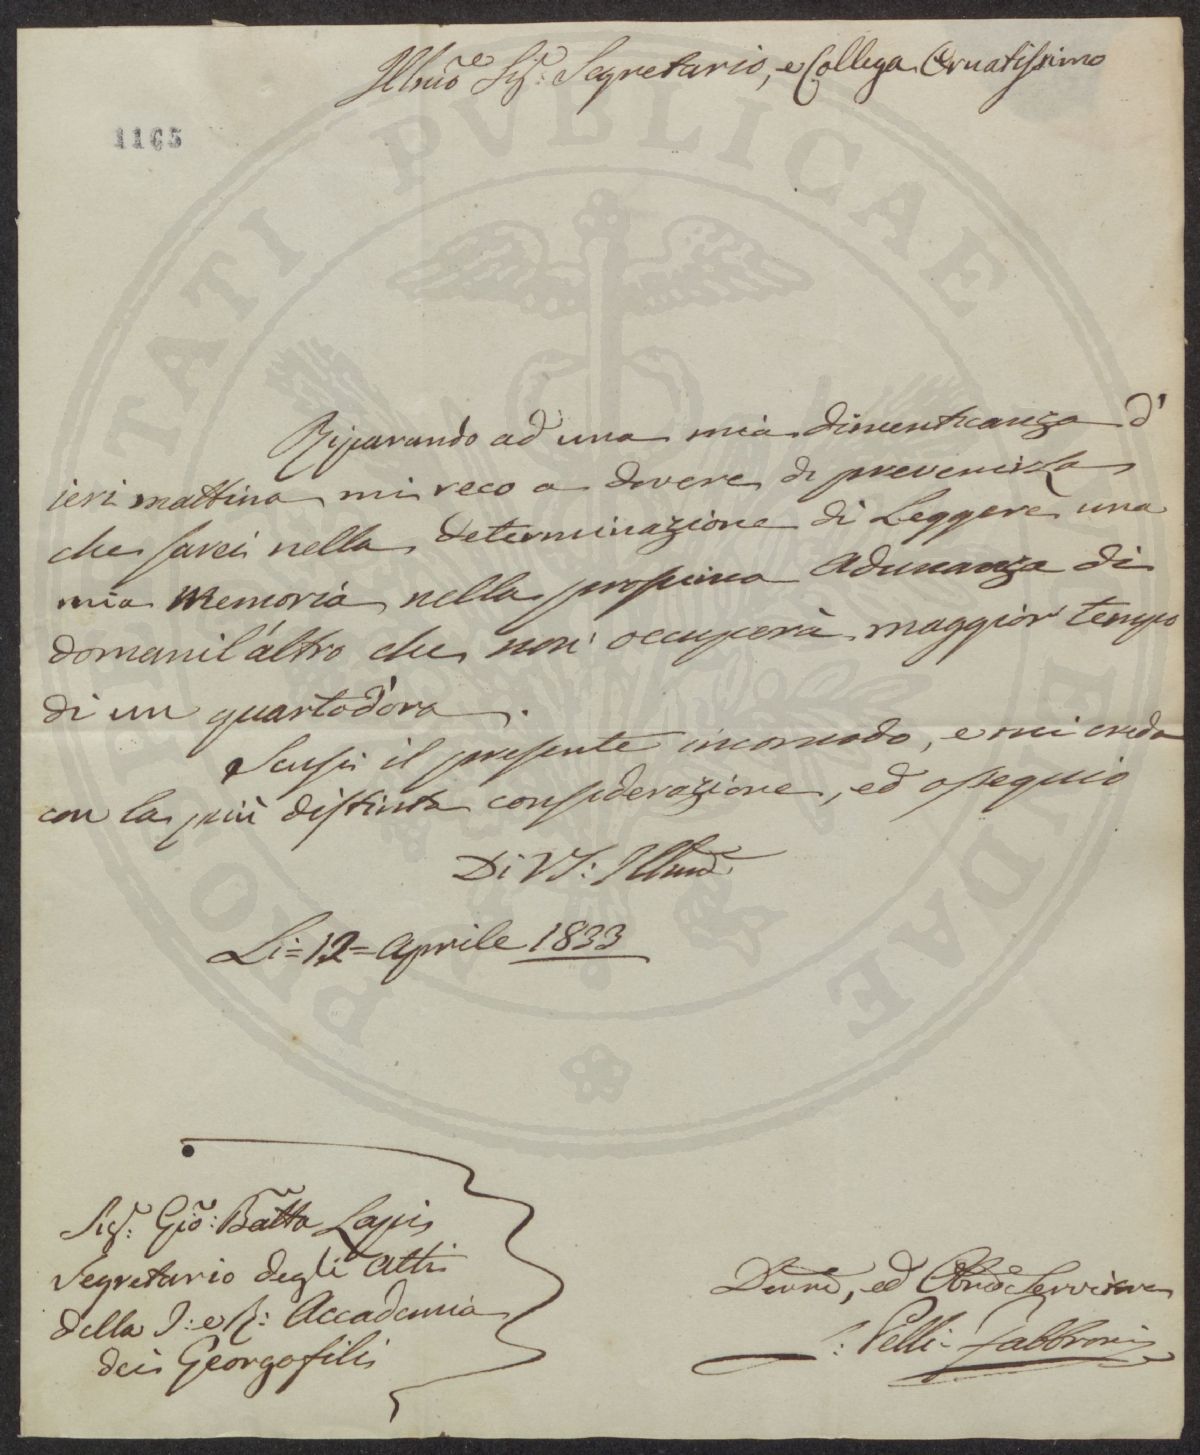 Illmo Sige: Segretario, e Collega Ornatissimo
1165
Riparando ad una mia dimenticanza d'
ieri mattina mi reco a dovere di prevenirLa
che sarei nella determinazione di Leggere una
mia Memoria nella prossima Adunanza di
domanil'altro che non occuperà maggior tempo
di un quartod'ora.
Scusi il presente incomodo, e mi creda
con la più distinta considerazione, ed ossequio
Di VS: Illma
Li= 12= Aprile 1833
Sigr: Gio: Batta Lapi
Segretario degli Atti
della I: e R: Accademia
dei Georgofili
Devmo, ed Obbmo Servitore
Pelli-Fabbroni
PROSPERITATI PVBLICAE AVGENDAE